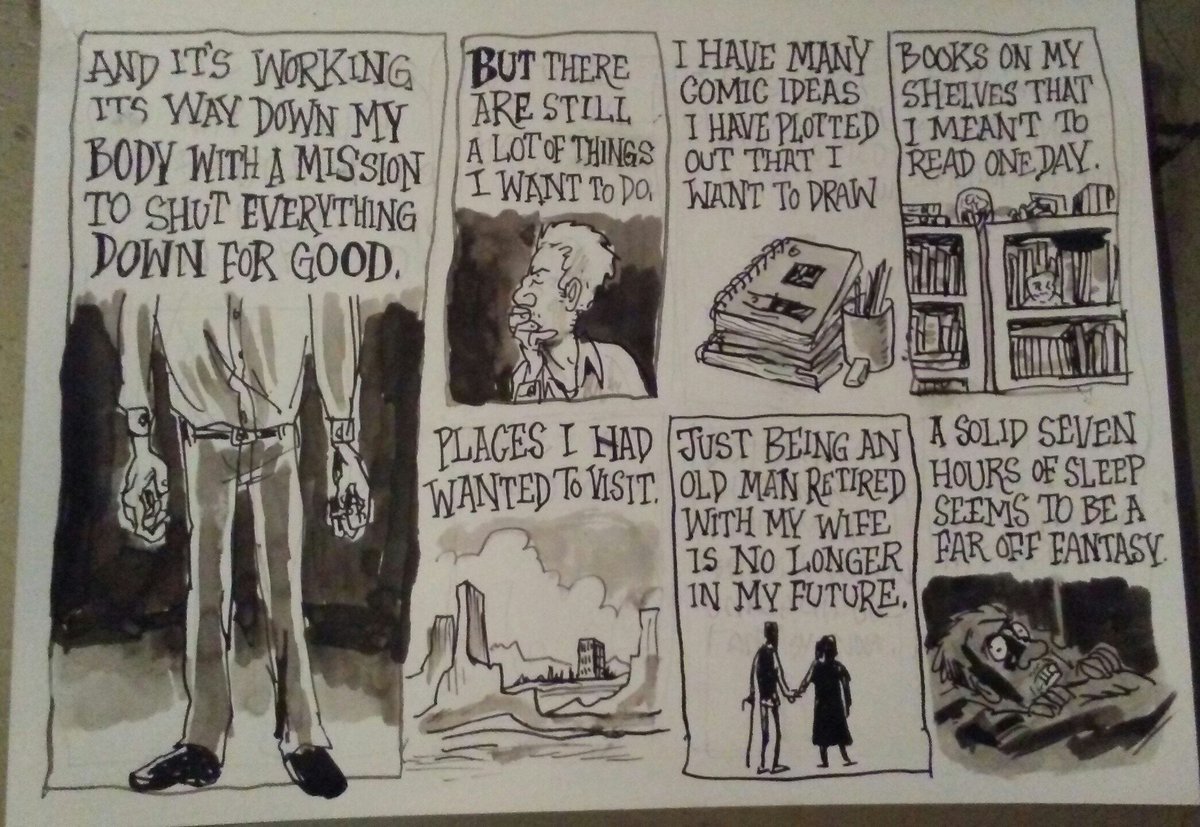 AND IT'S WORKING
ITS WAY DOWN MY
BODY WITH A MISSION
TO SHUT EVERYTHING
DOWN FOR GOOD.
BUT THERE
ARE STILL
A LOT OF THINGS
I WANT TO DO.
I HAVE MANY
COMIC IDEAS
I HAVE PLOTTED
OUT THAT I
WANT TO DRAW
BOOKS ON MY
SHELVES THAT
I MEANT TO
READ ONE DAY.
PLACES I HAD
WANTED TO VISIT.
JUST BEING AN
OLD MAN RETIRED
WITH MY WIFE
IS NO LONGER
IN MY FUTURE.
A SOLID SEVEN
HOURS OF SLEEP
SEEMS TO BE A
FAR OFF FANTASY.